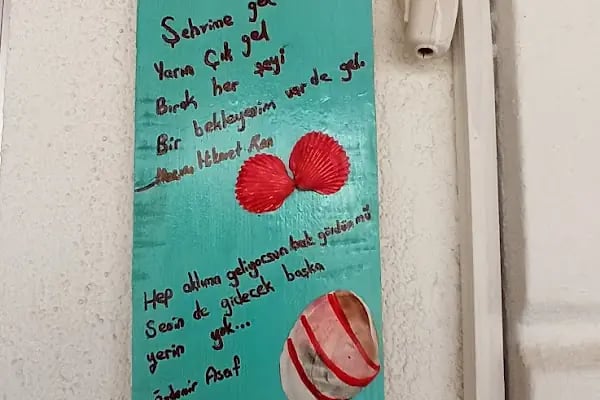 Şehrime gel
Yarın Çık gel
Bırak her şeyi
Bir bekleyenim var de gel.
Nazım Hikmet Ran
Hep aklıma geliyorsun bak gördün mü
Senin de gidecek başka
yerin yok...
Özdemir Asaf